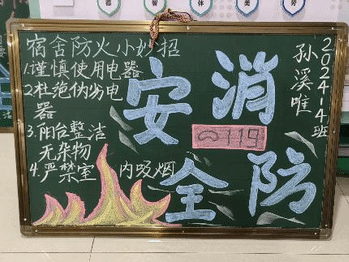 宿舍防火小妙招
1.谨慎使用电器
2.杜绝伪劣电
器
3.阳台整洁
无杂物
4.严禁室内吸烟
安全
消防
119
2024-4班
孙溪唯